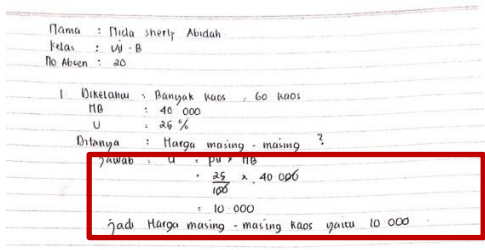 Nama : Nida sherly Abidah
Kelas : VII - B
No Absen : 20
1 Diketahui : Banyak kaos : 60 kaos
HB : 40 000
U : 25 %
Ditanya : Harga masing - masing ?
Jawab : U = PU x HB
= 25/100 x 40 000
= 10.000
Jadi Harga masing - masing kaos yaitu 10 000